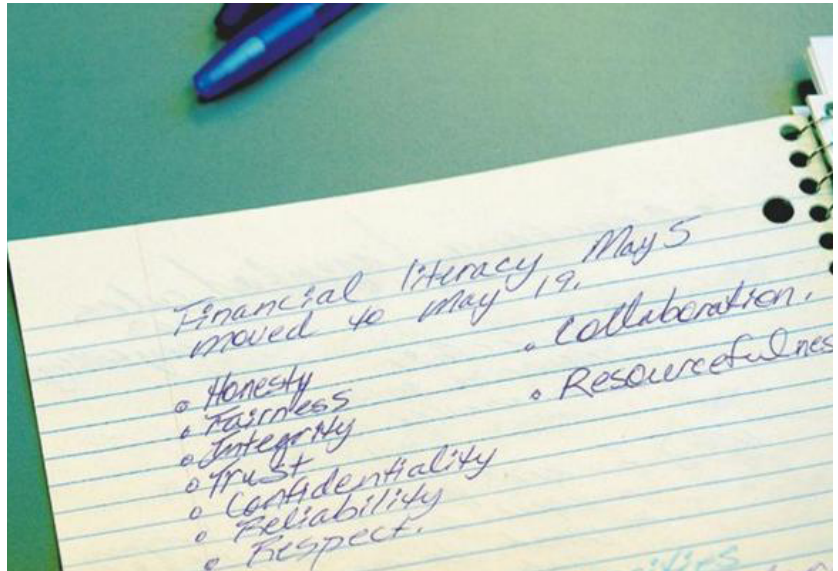 Financial literacy May 5
moved to May 19.
• Honesty
• Fairness
• Integrity
• Trust
• Confidentiality
• Reliability
• Respect.
• Collaboration.
• Resourcefulnes